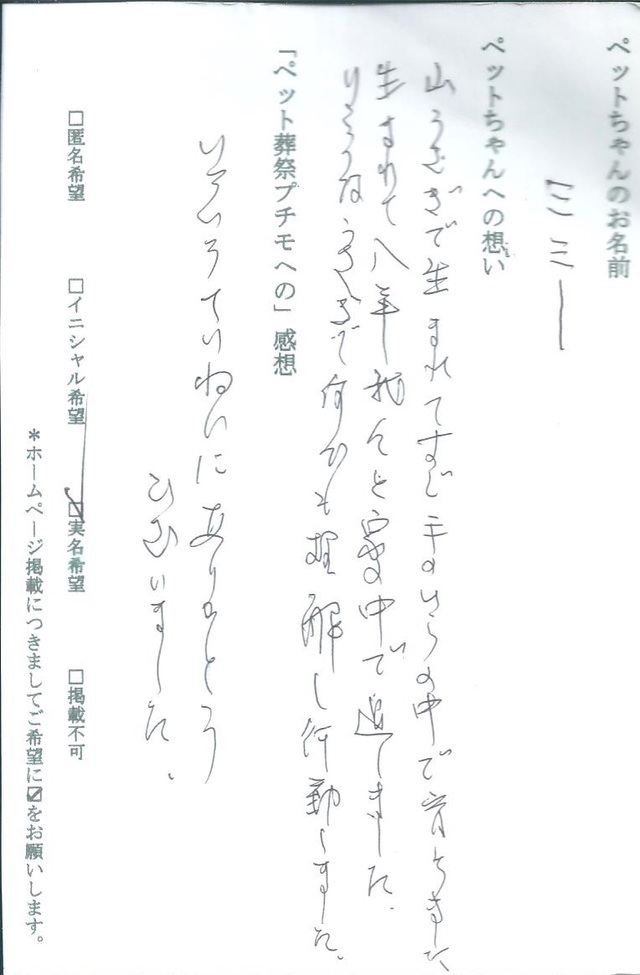 ペットちゃんのお名前
ミミー
ペットちゃんへの想い
山うさぎで生まれてすぐ手のひらの中で育ちました
生まれて八年し我んと家の中で過しました。
りこうなうさぎで何でも理解し行動しました。
「ペット葬祭プチモへの」感想
いろいろていねいにありがとう
ございました。
□匿名希望 □イニシャル希望 ☑実名希望 □掲載不可
＊ホームページ掲載につきましてご希望に☑をお願いします。